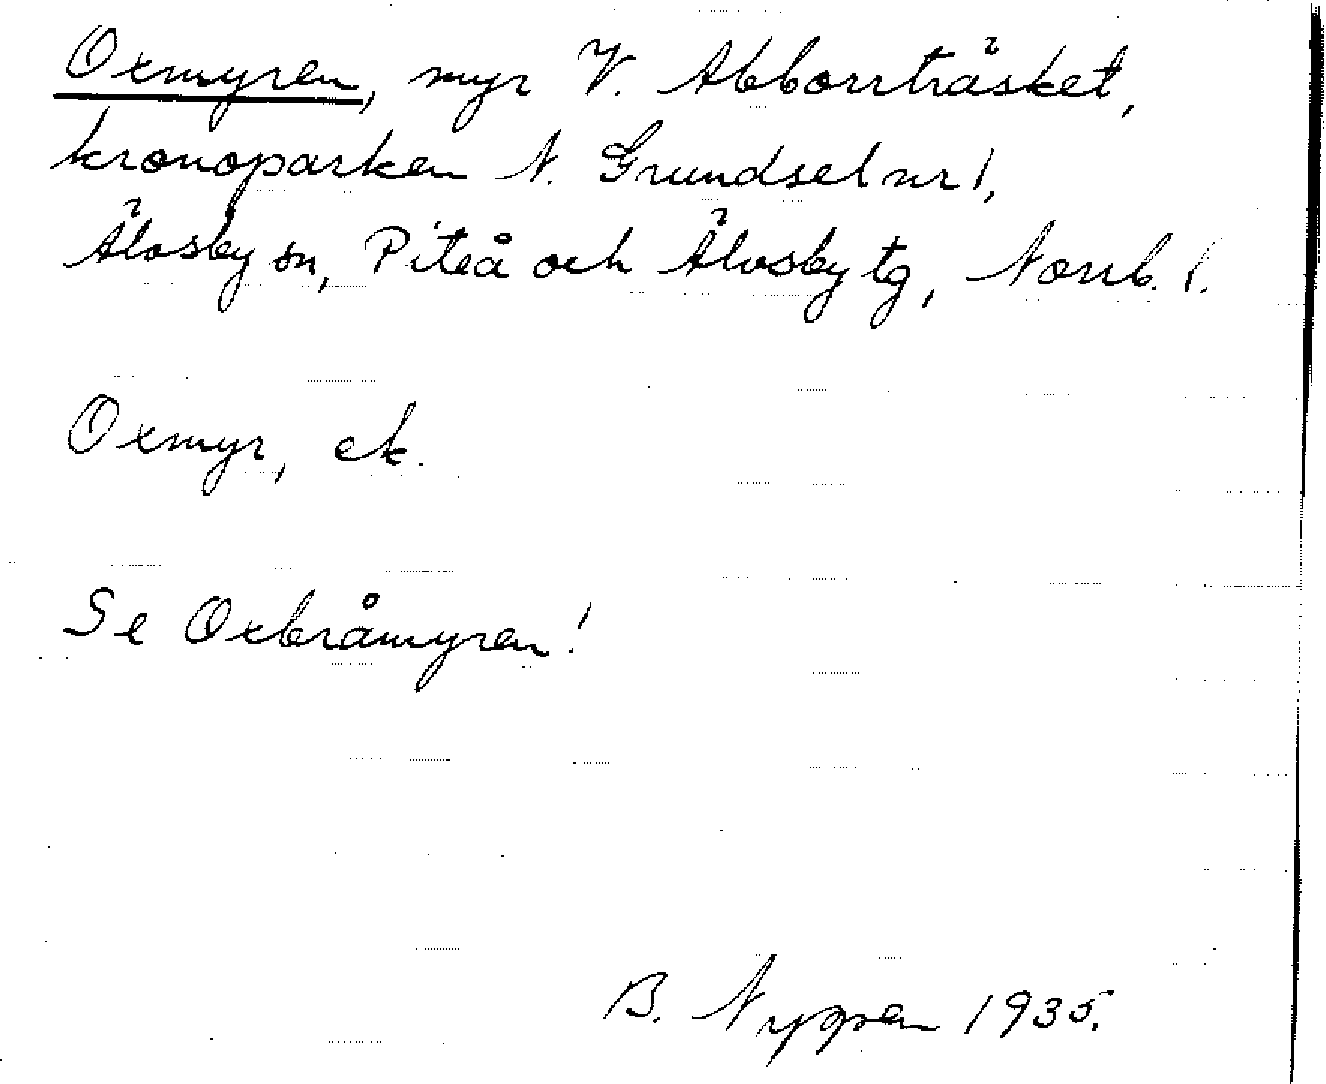 Oxmyren, myr V. Abborrträsket,
kronoparken N. Grundsel nr 1,
Älvsby sn, Piteå och Älvsby tg, Norrb. l.
Oxmyr, ek.
Se Oxbråmyren!
B. Nyppen 1935.